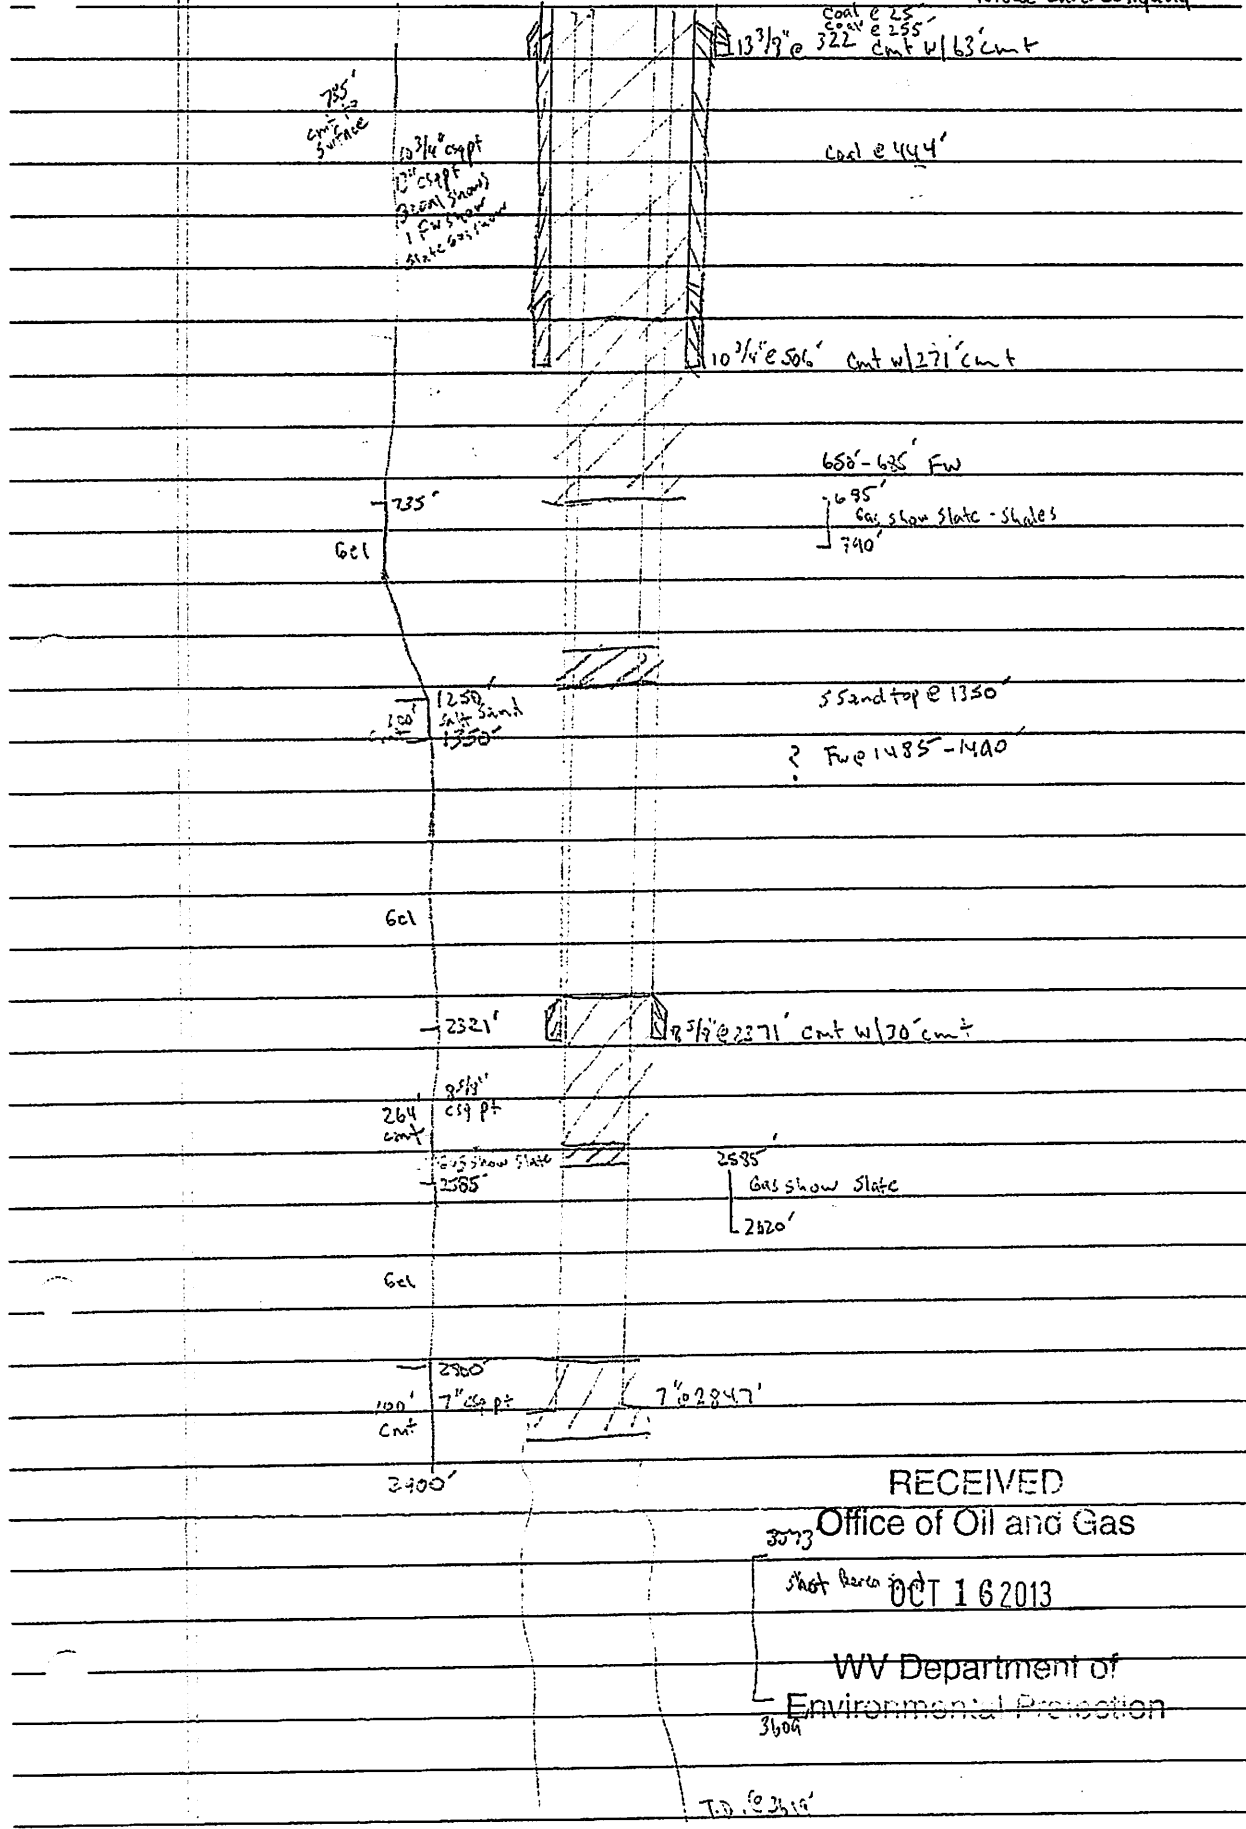 Coal @ 25'
Coal @ 255'
13 3/8" @ 322' Cmt w/ 63' cmt
735'
cmt to
surface
10 3/4" csg pt
csg pt
3 coal shows
1 FW show
Slate Gas show
Coal @ 444'
10 3/4" @ 506' Cmt w/ 271' cmt
650'-685' FW
735'
685'
Gas show Slate - Shales
790'
Gel
1250'
Salt Sand
100'
1350'
S Sand top @ 1350'
? FW @ 1485'-1490'
Gel
2321'
8 5/8" @ 2371' Cmt w/ 30' cmt
8 5/8"
csg pt
264'
cmt
Gas show Slate
2585'
2585'
Gas show Slate
2620'
Gel
2800'
7" csg pt
100'
Cmt
7" @ 2847'
2900'
RECEIVED
Office of Oil and Gas
3573
Shot Berea
OCT 16 2013
WV Department of
Environmental Protection
3609'
T.D. @ 3619'